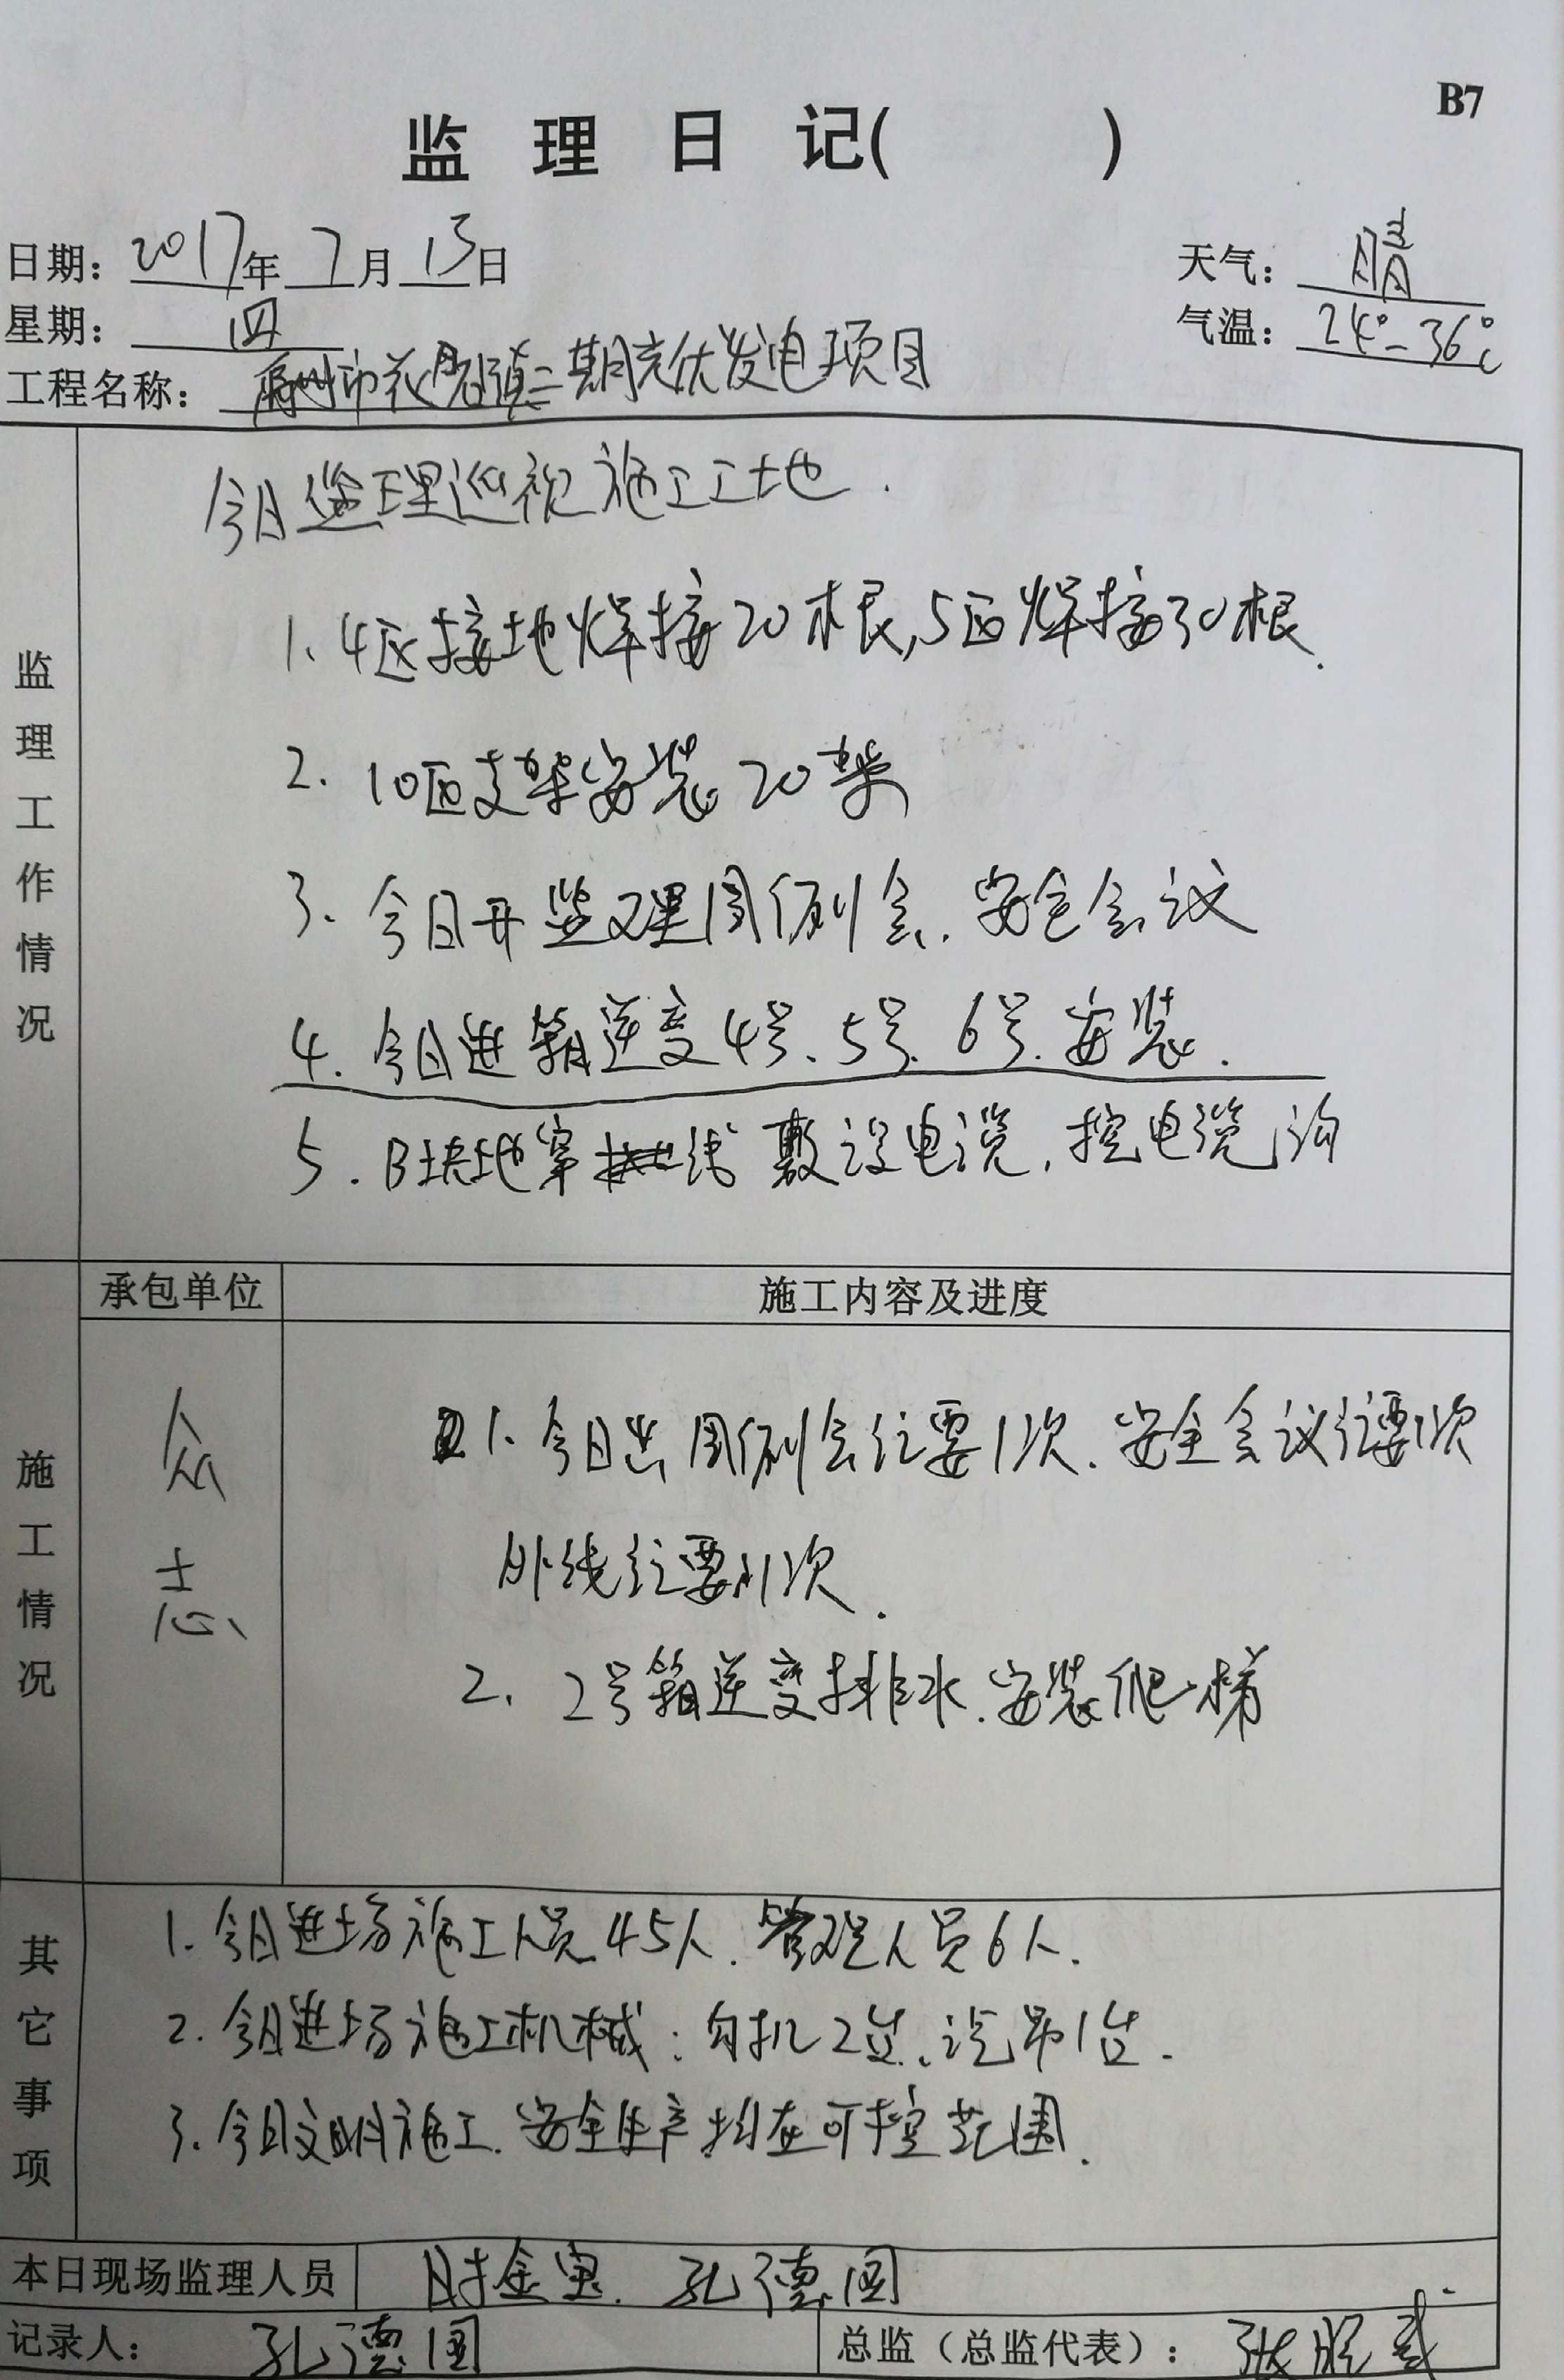 B7
监理日记( )
日期：2017年7月13日
天气：晴
星期：四
气温：24°-36°C
工程名称：禹州市花石镇二期光伏发电项目
监理工作情况
今日监理巡视施工工地.
1、4区接地焊接20根,5区焊接30根.
2. 10区支架安装20架
3、今日开监理周例会、安全会议
4. 今日进箱逆变4号、5号、6号.安装.
5. B块地穿线敷设电缆,挖电缆沟
施工情况
承包单位
施工内容及进度
众志
1、今日出周例会纪要1次、安全会议纪要1次
外线纪要1次.
2、2号箱逆变排水.安装爬梯
其它事项
1.今日进场施工人员45人.管理人员6人.
2.今日进场施工机械：勾机2台、汽吊1台.
3.今日文明施工.安全生产均在可控范围.
本日现场监理人员
时金宝.孔德国
记录人：孔德国
总监（总监代表）：张